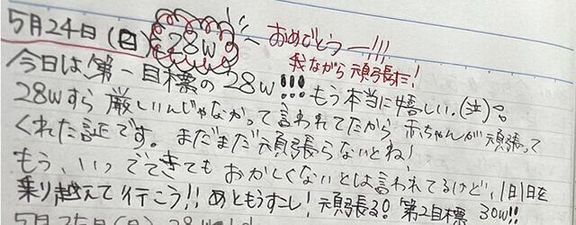 5月24日(日) 28w おめでとうー!!!
我ながら頑張た!
今日は第一目標の28w!!! もう本当に嬉しい。(泣)。
28wすら厳しいんじゃなかって言われてたから赤ちゃんが頑張って
くれた証です。まだまだ頑張らないとね!
もう、いつでてきてもおかしくないとは言われてるけど、1日1日を
乗り越えて行こう!! あともうすこし! 頑張る! 第2目標 30w!!
5月25日(月) 28w